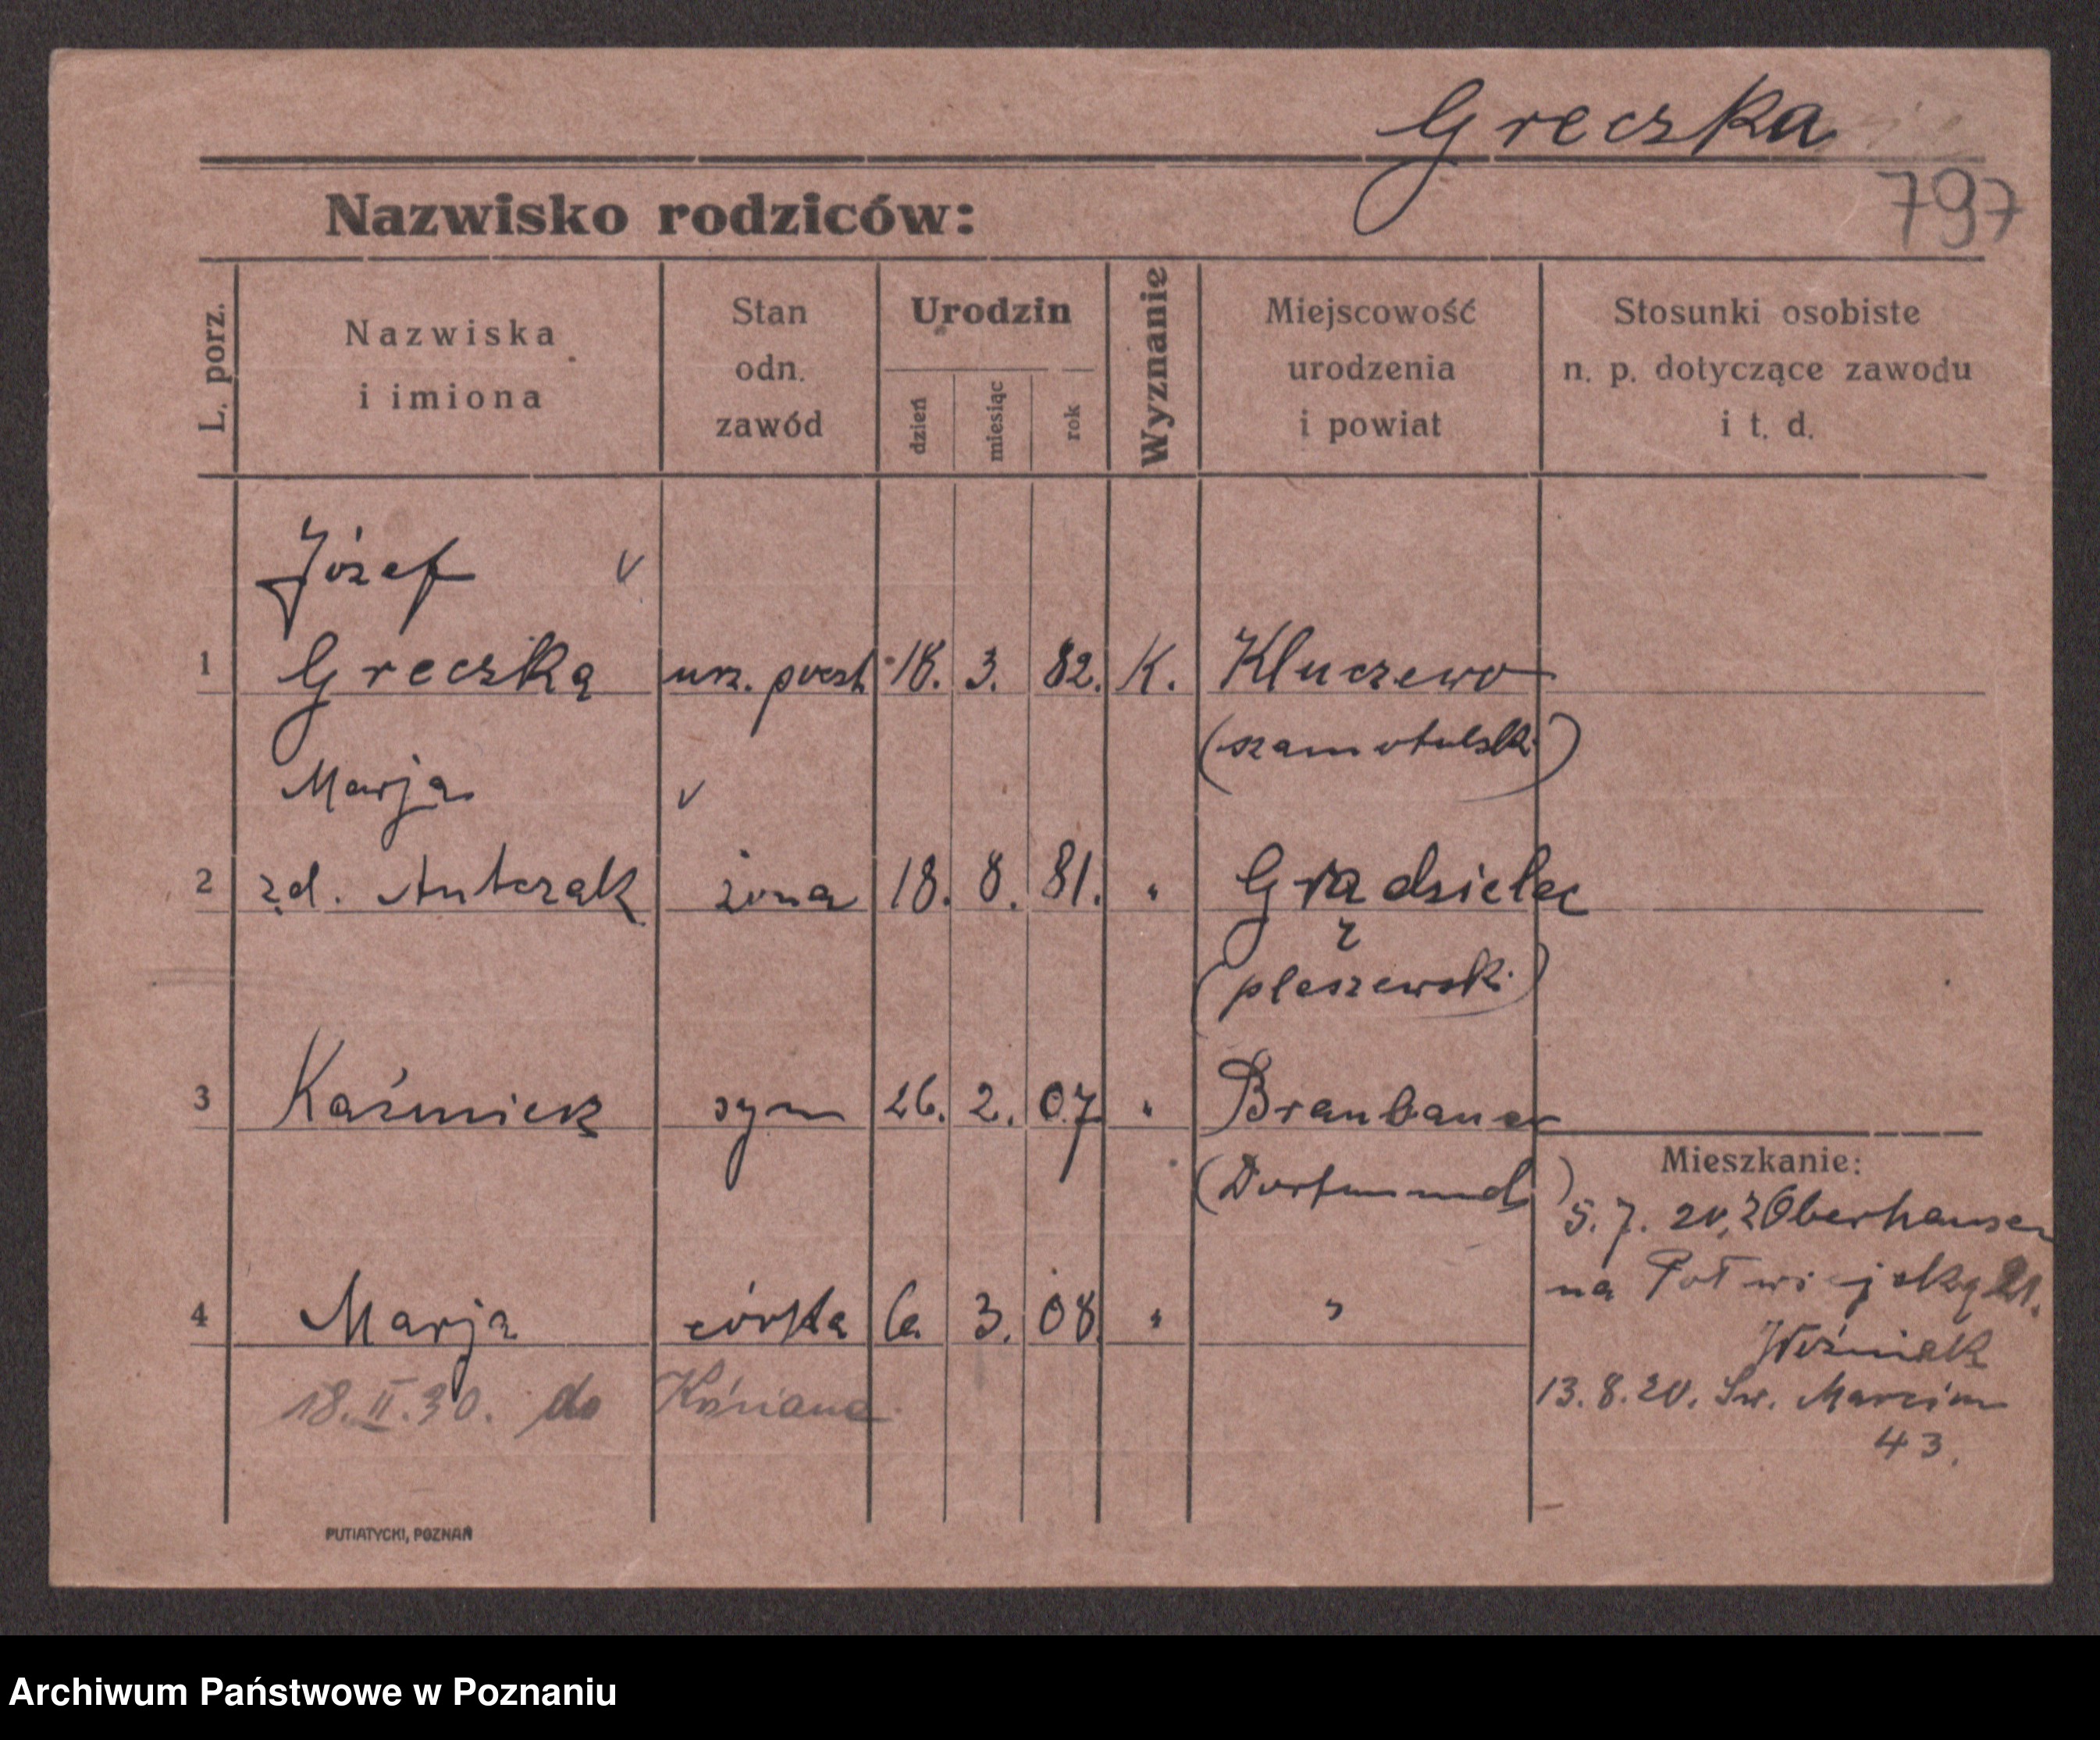 Greczka
797
Nazwisko rodziców:
L. porz.
Nazwiska
i imiona
Stan
odn.
zawód
Urodzin
dzień
miesiąc
rok
Wyznanie
Miejscowość
urodzenia
i powiat
Stosunki osobiste
n. p. dotyczące zawodu
i t. d.
Józef v
1 Greczka urz. poczt 18. 3. 82. K. Kluczewo
(szamotulski)
Marja v
2 zd. Antczak żona 18. 8. 81. " Gradzielec
(pleszewski)
3 Kaźmierz syn 26. 2. 07 " Braubauer
(Dortmund)
Mieszkanie:
5. 7. 20, z Oberhausen
na Połwiejską 21.
Woźniak
4 Marja córka 6. 3. 08. " "
13. 8. 20. Św. Marcin
43.
18. II. 30. do
PUTIATYCKI, POZNAŃ
Archiwum Państwowe w Poznaniu